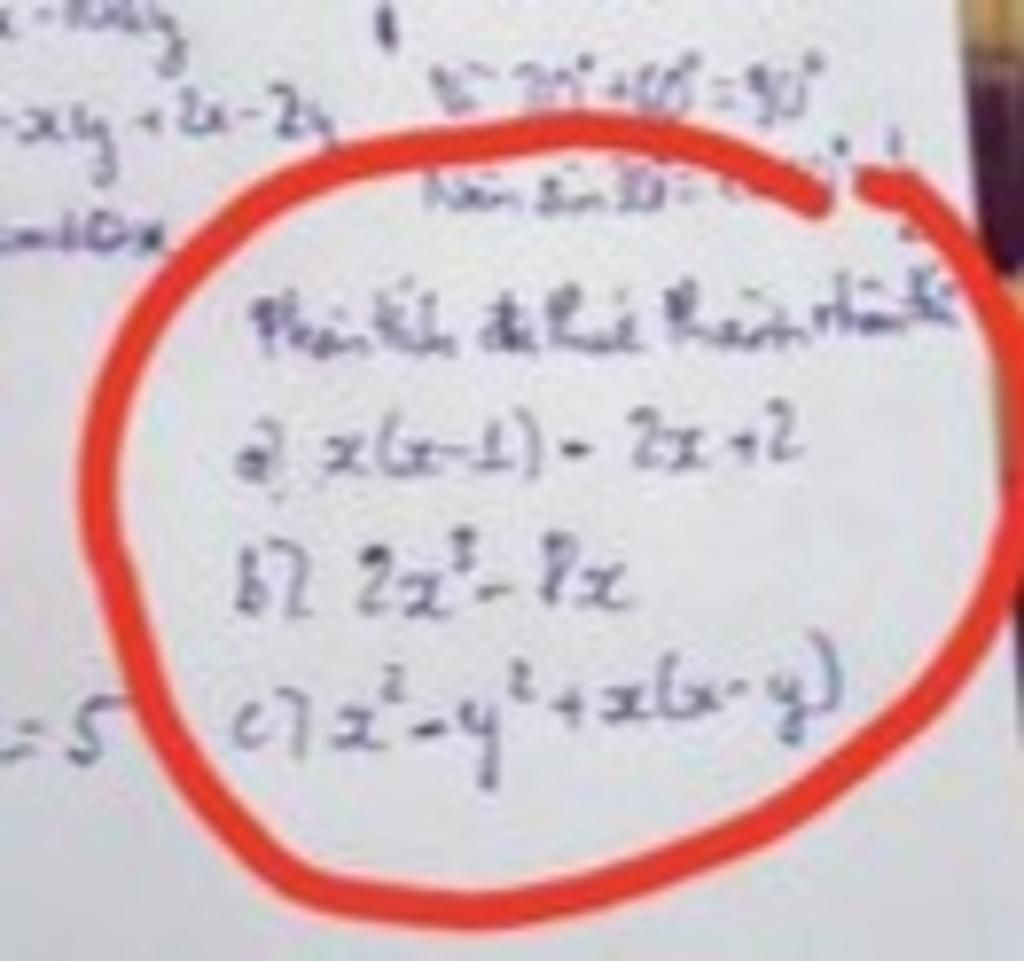 -xy + 2x - 2y
= 90°
sin 30° =
Phân tích đa thức thành nhân tử
a) x(x-1) - 2x + 2
b) 2x³ - 8x
= 5
c) x² - y² + x(x-y)